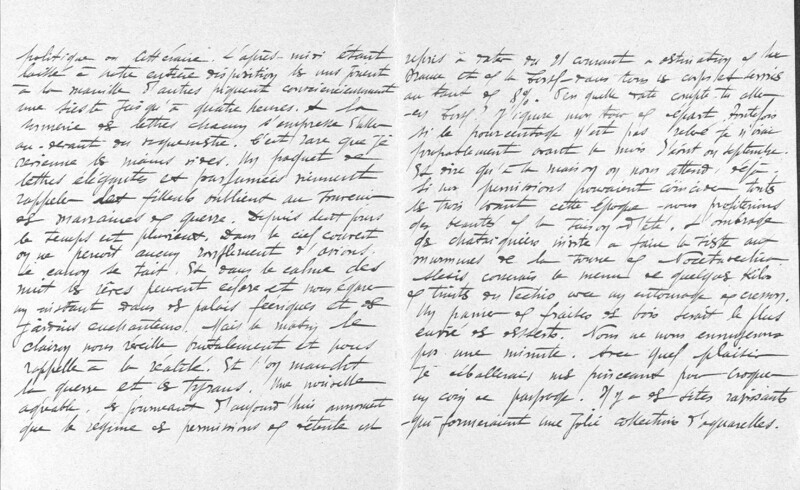 politique ou littéraire. L'après-midi étant
laissé à notre entière disposition les uns jouent
à la manille d'autres piquent consciencieusement
une sieste jusqu'à quatre heures. A la
des lettres chacun s'empresse d'aller
au-devant du vaguemestre. C'est rare que je
revienne les mains vides. Un paquet de
lettres élégantes et parfumées viennent
rappeler les filleuls oublient au
et marraines de guerre. Depuis deux jours
le temps est pluvieux. Dans le ciel couvert
on ne perçoit aucun ronflement d'avions.
le canon se tait. Et dans le calme des
nuit les rêves peuvent éclore et nous égarer
un instant dans des palais féeriques et des
jardins enchanteurs. Mais le matin le
clairon nous réveille brutalement et nous
rappelle à la réalité. Et l'on maudit
la guerre et les tyrans. Une nouvelle
agréable. Les journeaux d'aujourd'hui annoncent
que le régime des permissions de détente est
repris à dater du 21 courant à destination de la
France et de la Corse dans tous les corps de
au taux de 8%. En quelle date compte tu aller
en Corse? J'ignore mon tour de départ. Toutefois
si le pourcentage n'est pas relevé je n'irai
probablement avant le mois d'août ou septembre.
Et dire qu'à la maison on nous attend déjà.
Si nos permissions pouvaient coïncider toutes
les trois vers cette époque nous profiterions
des beautés de la saison d'été. L'ombrage
des chataigniers invite à faire la sieste aux
murmures de la et
le menu de quelques kilos
de truites du Vecchio avec un entourage de cresson.
Un panier de fraises des bois serait le plus
envié des desserts. Nous ne nous ennuyerons
pas une minute. Avec quel plaisir
je déballerai mes pinceaux pour croquer
un coin de paysage. Il y a des sites ravissants
qui formeraient une jolie collection d'aquarelles.